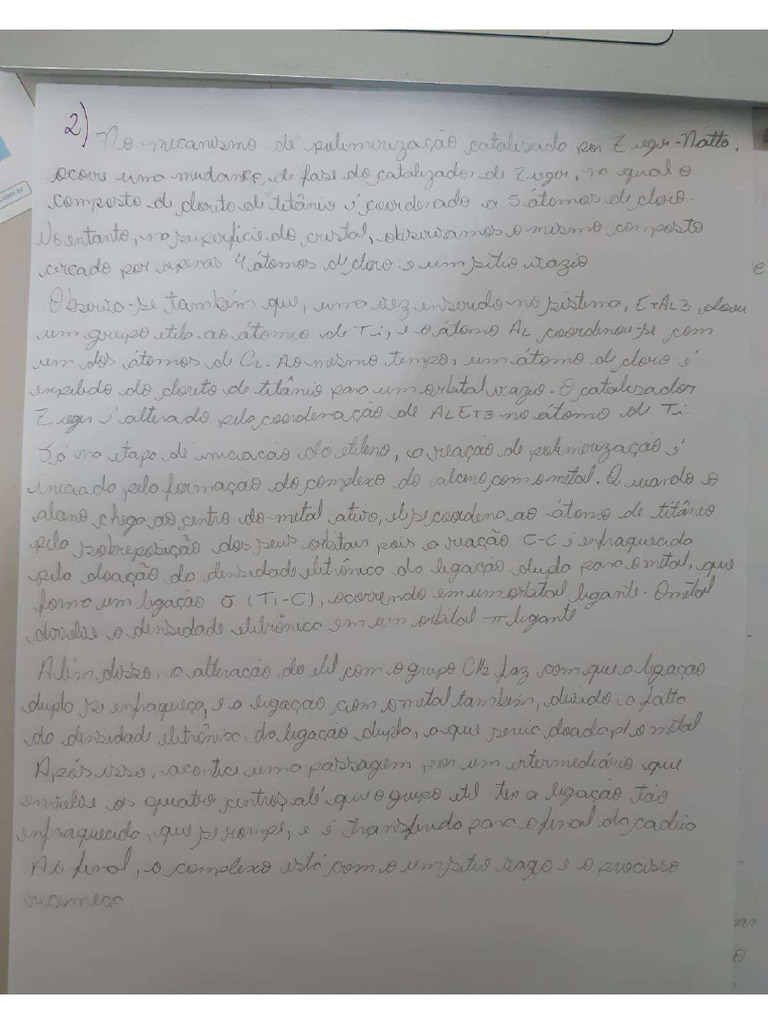 2) No mecanismo de polimerização catalisado por Ziegr-Natto,
ocorre uma mudança, de fase do catalizador de Ziegr, no qual o
composto de clorito de titânio é coordenado a 5 átomos de cloro.
No entanto, na superfície do cristal, observamos o mesmo composto
cercado por apenas 4 átomos de cloro e um sítio vazio
Observa-se também que, uma vez inserido no sistema, ETAL3, doou
um grupo etila ao átomo de Ti, e o átomo AL coordenou-se com
um dos átomos de CL. Ao mesmo tempo, um átomo de cloro é
expelido do clorito de titânio para um orbital vazio. O catalisador
Ziegr é alterado pela coordenação de ALET3 no átomo de Ti
Já na etapa de iniciação do etileno, a reação de polimerização é
iniciada pela formação do complexo do alceno com o metal. Quando o
alceno chega ao centro do metal ativo, ele se coordena ao átomo de titânio
pela sobreposição dos seus orbitais pois a reação C-C é enfraquecida
pela doação da densidade eletrônica da ligação dupla para o metal, que
forma um ligação σ (Ti-C), ocorrendo em um orbital ligante. O metal
devolve a densidade eletrônica em um orbital -π ligante
Além disso, a alteração do etil com o grupo CH2 faz com que a ligação
dupla se enfraqueça, e a ligação com o metal também, devido a falta
da densidade eletrônica da ligação dupla, a que seria doada p/ o metal
Após isso, acontece uma passagem por um intermediário que
envolve os quatro centros até que o grupo etil ter a ligação tão
enfraquecida, que se rompe, e é transferido para o final da cadeia
Ao final, o complexo está com o um sítio vago e o processo
recomeça.